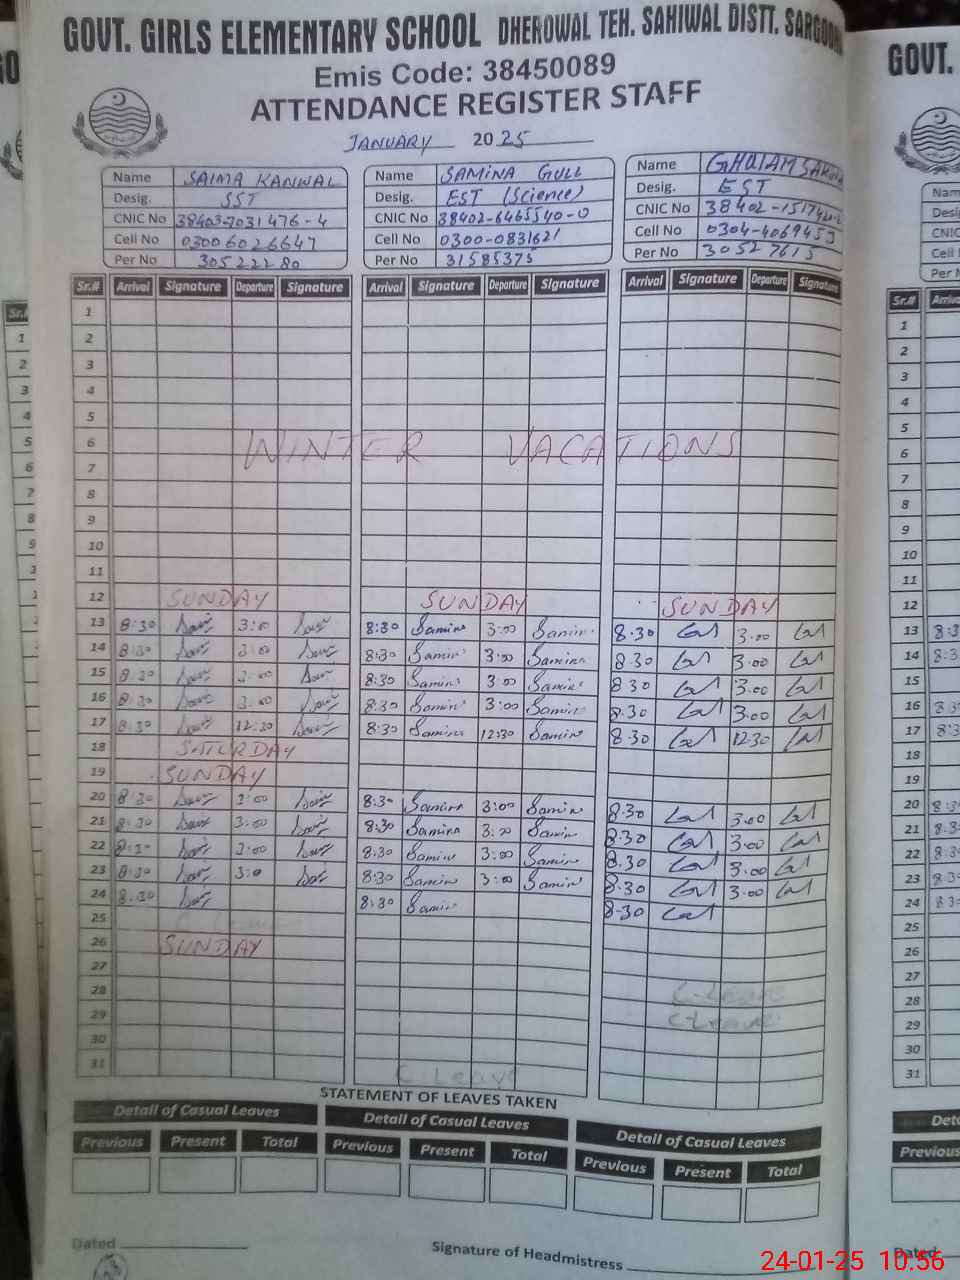 GOVT. GIRLS ELEMENTARY SCHOOL DHEROWAL TEH. SAHIWAL DISTT. SARGODHA
Emis Code: 38450089
ATTENDANCE REGISTER STAFF
JANUARY 2025
Name SAIMA KANWAL Name SAMINA GULL Name GHULAM SAKINA
Desig. SST Desig. EST (Science) Desig. EST
CNIC No 38403-7031476-4 CNIC No 38402-6465540-0 CNIC No 38402-15174
Cell No 03006026647 Cell No 0300-0831621 Cell No 0304-4069453
Per No 30522280 Per No 31585375 Per No 30527615
Sr.# Arrival Signature Departure Signature Arrival Signature Departure Signature Arrival Signature Departure Signature
1
2
3
4
5
6 WINTER VACATIONS
7
8
9
10
11
12 SUNDAY SUNDAY SUNDAY
13 8:30 3:00 8:30 Samina 3:00 Samina 8.30 3.00
14 8:30 3:00 8:30 Samina 3:00 Samina 8.30 3.00
15 8:30 3:00 8:30 Samina 3:00 Samina 8.30 3.00
16 8:30 3:00 8:30 Samina 3:00 Samina 8.30 3.00
17 8:30 12:30 8:30 Samina 12:30 Samina 8.30 12.30
18 SATURDAY
19 SUNDAY
20 8:30 3:00 8:30 Samina 3:00 Samina 8.30 3.00
21 8:30 3:00 8:30 Samina 3:00 Samina 8.30 3.00
22 8:30 3:00 8:30 Samina 3:00 Samina 8.30 3.00
23 8:30 3:0 8:30 Samina 3:00 Samina 8.30 3.00
24 8:30 8:30 Samina 8.30
25 C Leave
26 SUNDAY
27
28 C-Leave
29 C-Leave
30
31 C Leave
STATEMENT OF LEAVES TAKEN
Detail of Casual Leaves Detail of Casual Leaves Detail of Casual Leaves
Previous Present Total Previous Present Total Previous Present Total
Dated
Signature of Headmistress
24-01-25 10:56